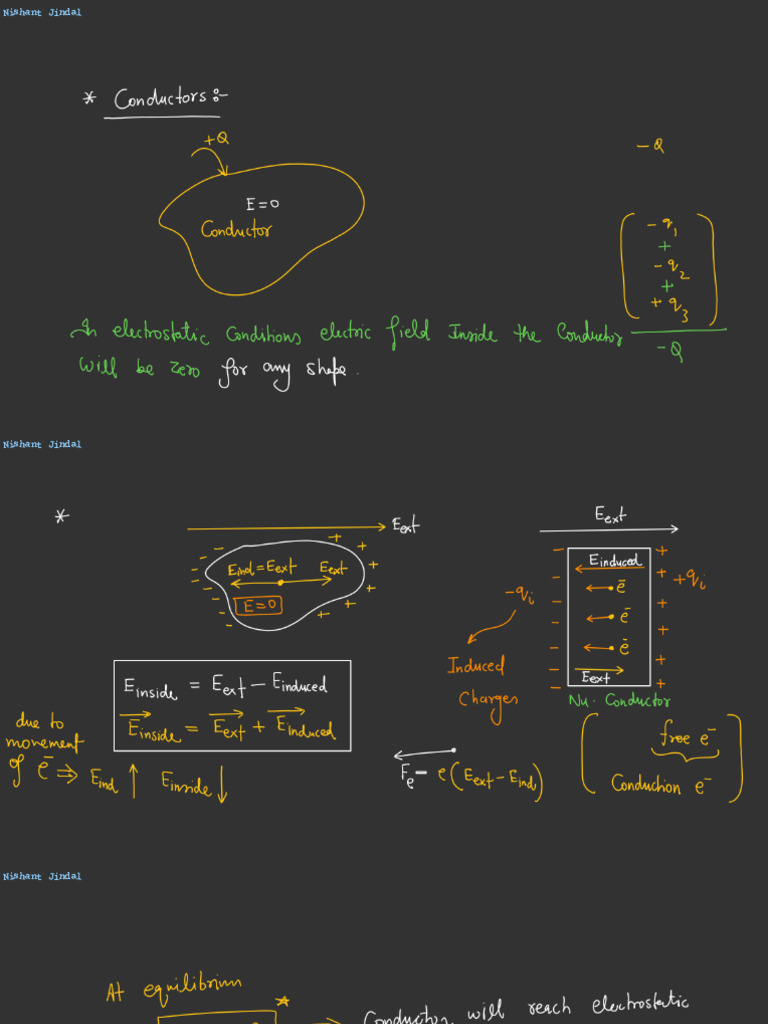 Nishant Jindal
* Conductors :-
+Q
E = 0
Conductor
-Q
- q1
+
- q2
+
+ q3
-Q
In electrostatic Conditions electric field Inside the Conductor
will be zero for any shape.
Nishant Jindal
*
Eext
Eind = Eext
Eext
E = 0
- - - - - - -
+ + + + + + +
Einside = Eext - Einduced
Einside = Eext + Einduced
due to
movement
of e- ⇒ Eind ↑ Einside ↓
Eext
Einduced
e-
e-
e-
Eext
- - - - - - -
+ + + + + +
-qi
+qi
Induced
Charges
Nu. Conductor
Fe = e(Eext - Eind)
free e-
Conduction e-
Nishant Jindal
At equilibrium
*
⇒ Conductor will reach electrostatic